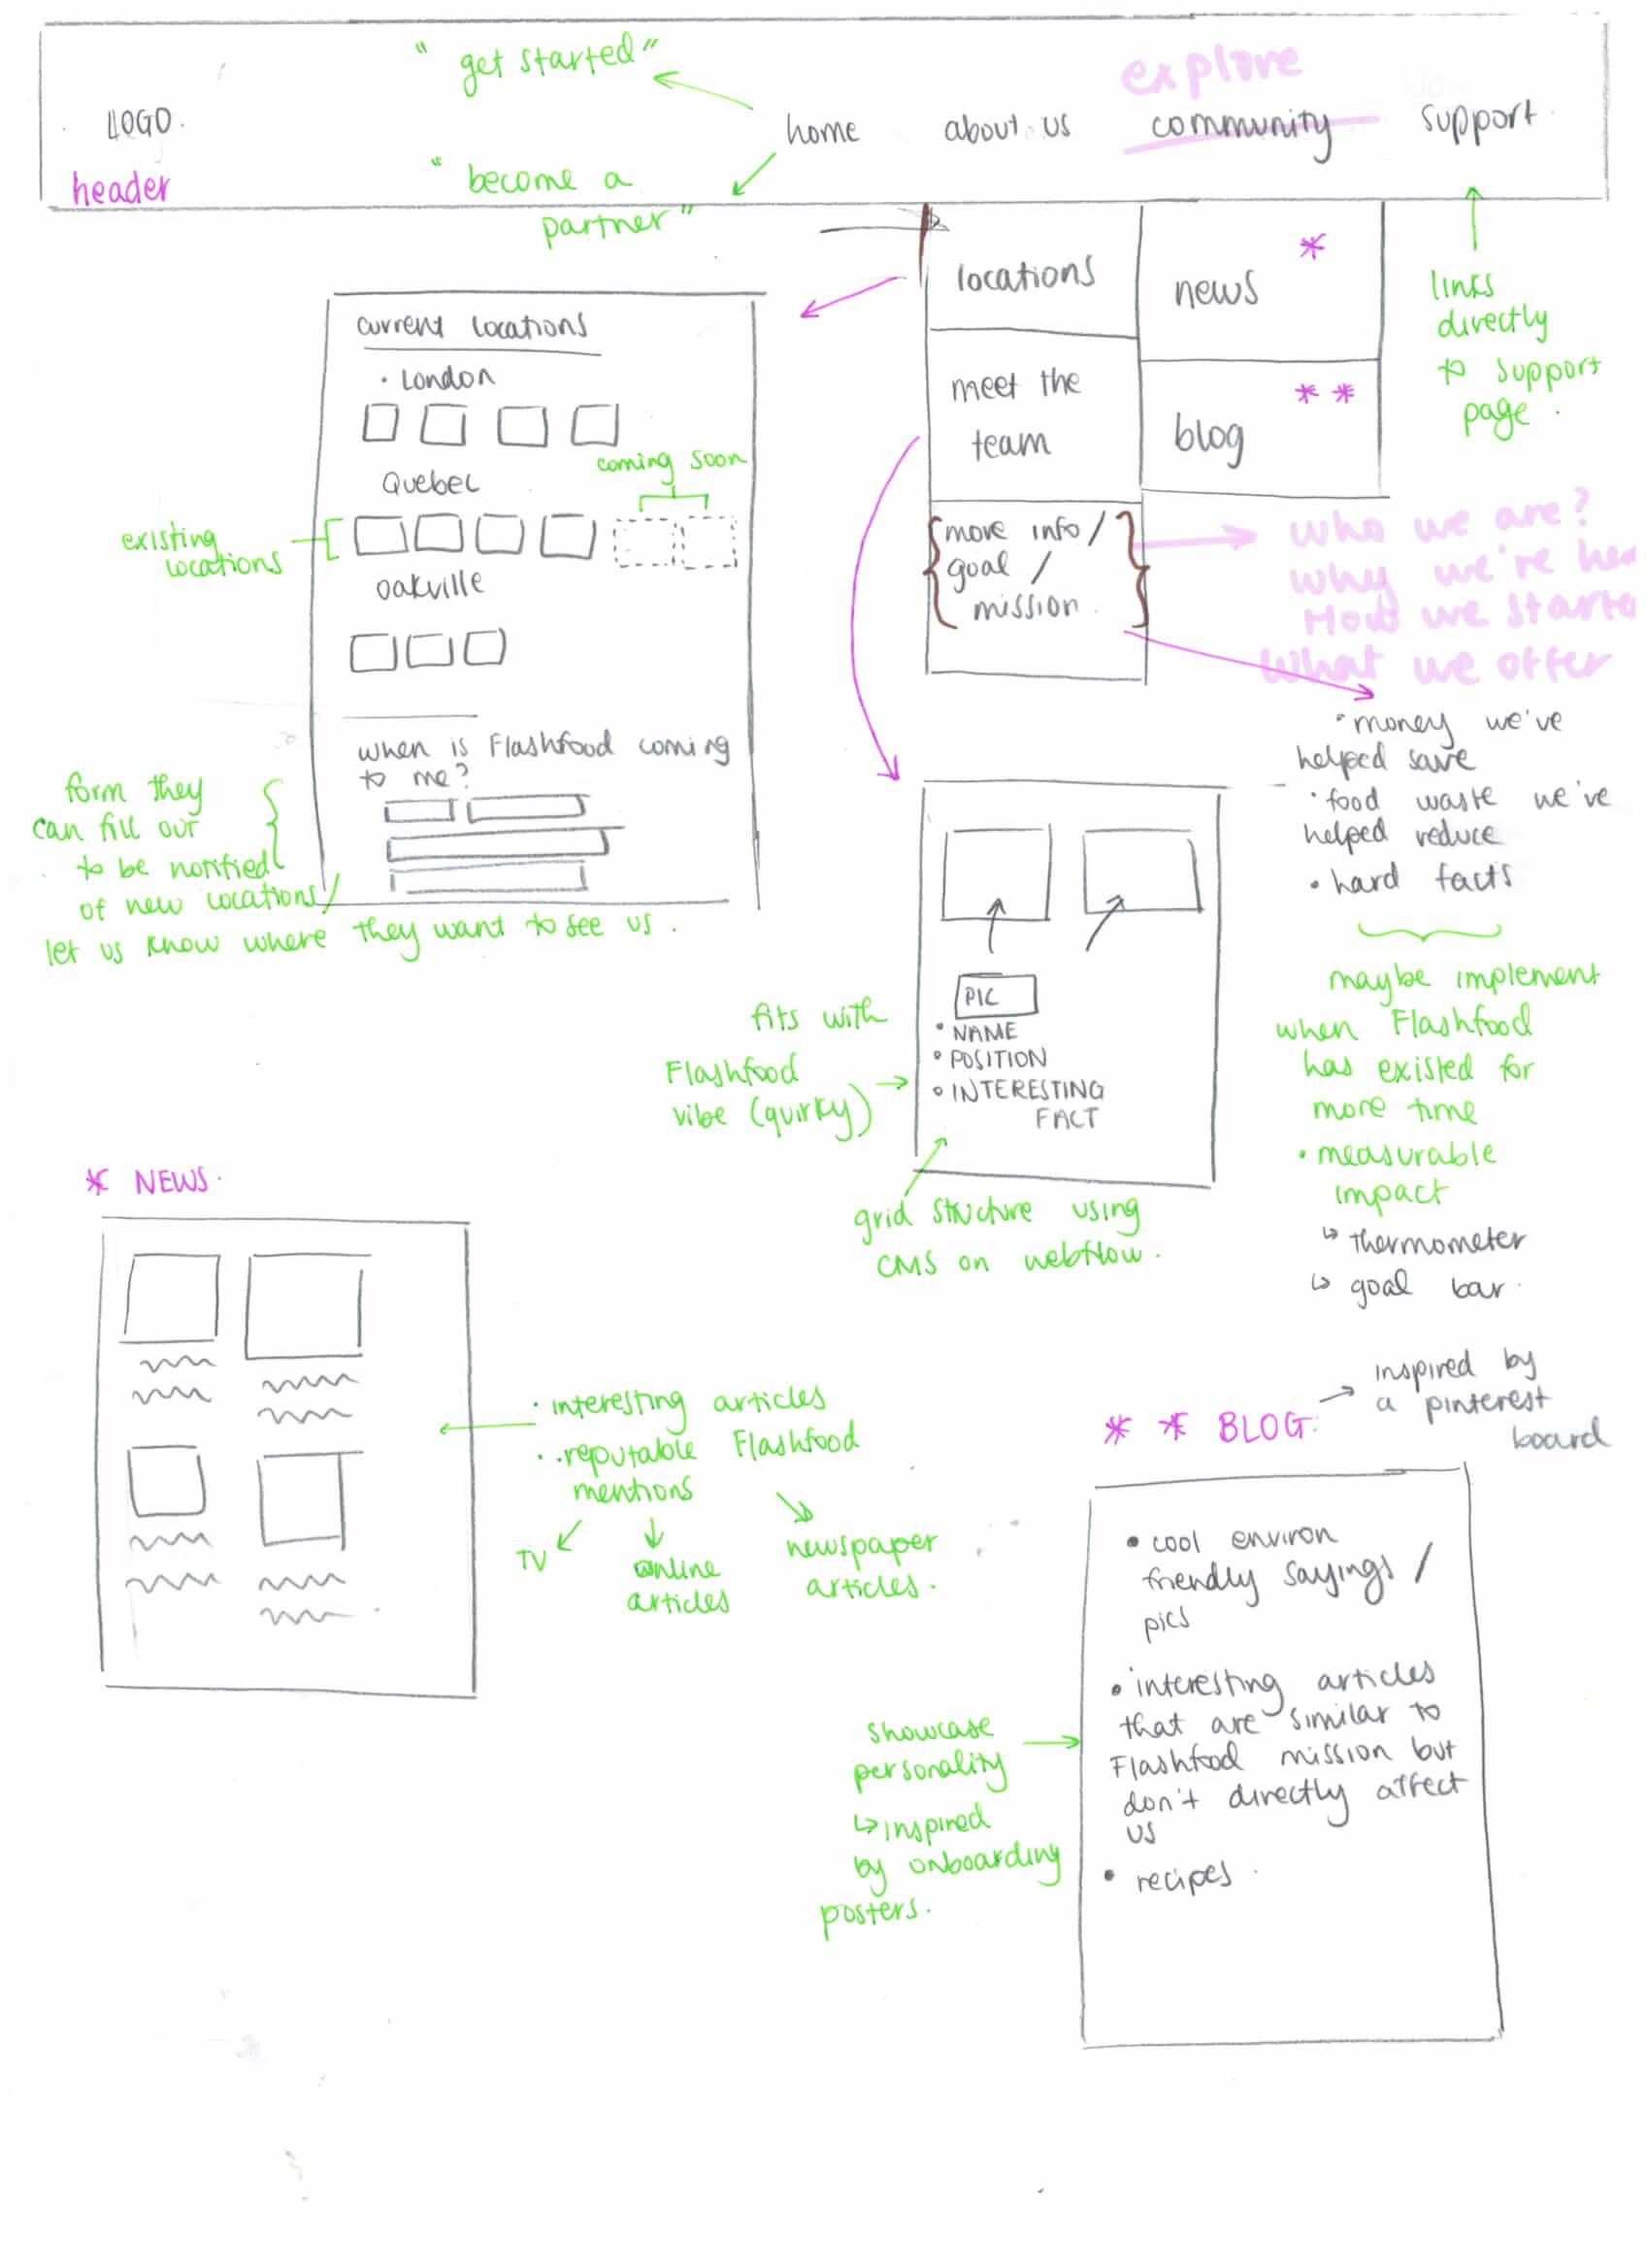 " get started "
explore
LOGO.
home
about us
community
support.
header
" become a
partner "
locations
news *
meet the
team
blog * *
more info /
goal /
mission.
links
directly
to support
page.
current locations
• London
Quebec
coming soon
existing
locations
Oakville
when is Flashfood coming
to me?
form they
can fill out
to be notified
of new locations/
let us know where they want to see us.
who we are?
why we're
How we
What we offer
• money we've
helped save
• food waste we've
helped reduce
• hard facts
maybe implement
when Flashfood
has existed for
more time
• measurable
impact
↳ thermometer
↳ goal bar.
PIC
• NAME
• POSITION
• INTERESTING
FACT
fits with
Flashfood
vibe (quirky)
grid structure using
CMS on webflow.
* NEWS.
• interesting articles
• reputable Flashfood
mentions
TV
online
articles
newspaper
articles.
* * BLOG:
inspired by
a pinterest
board
• cool environ
friendly sayings /
pics
• interesting articles
that are similar to
Flashfood mission but
don't directly affect
us
• recipes.
showcase
personality
↳ inspired
by onboarding
posters.